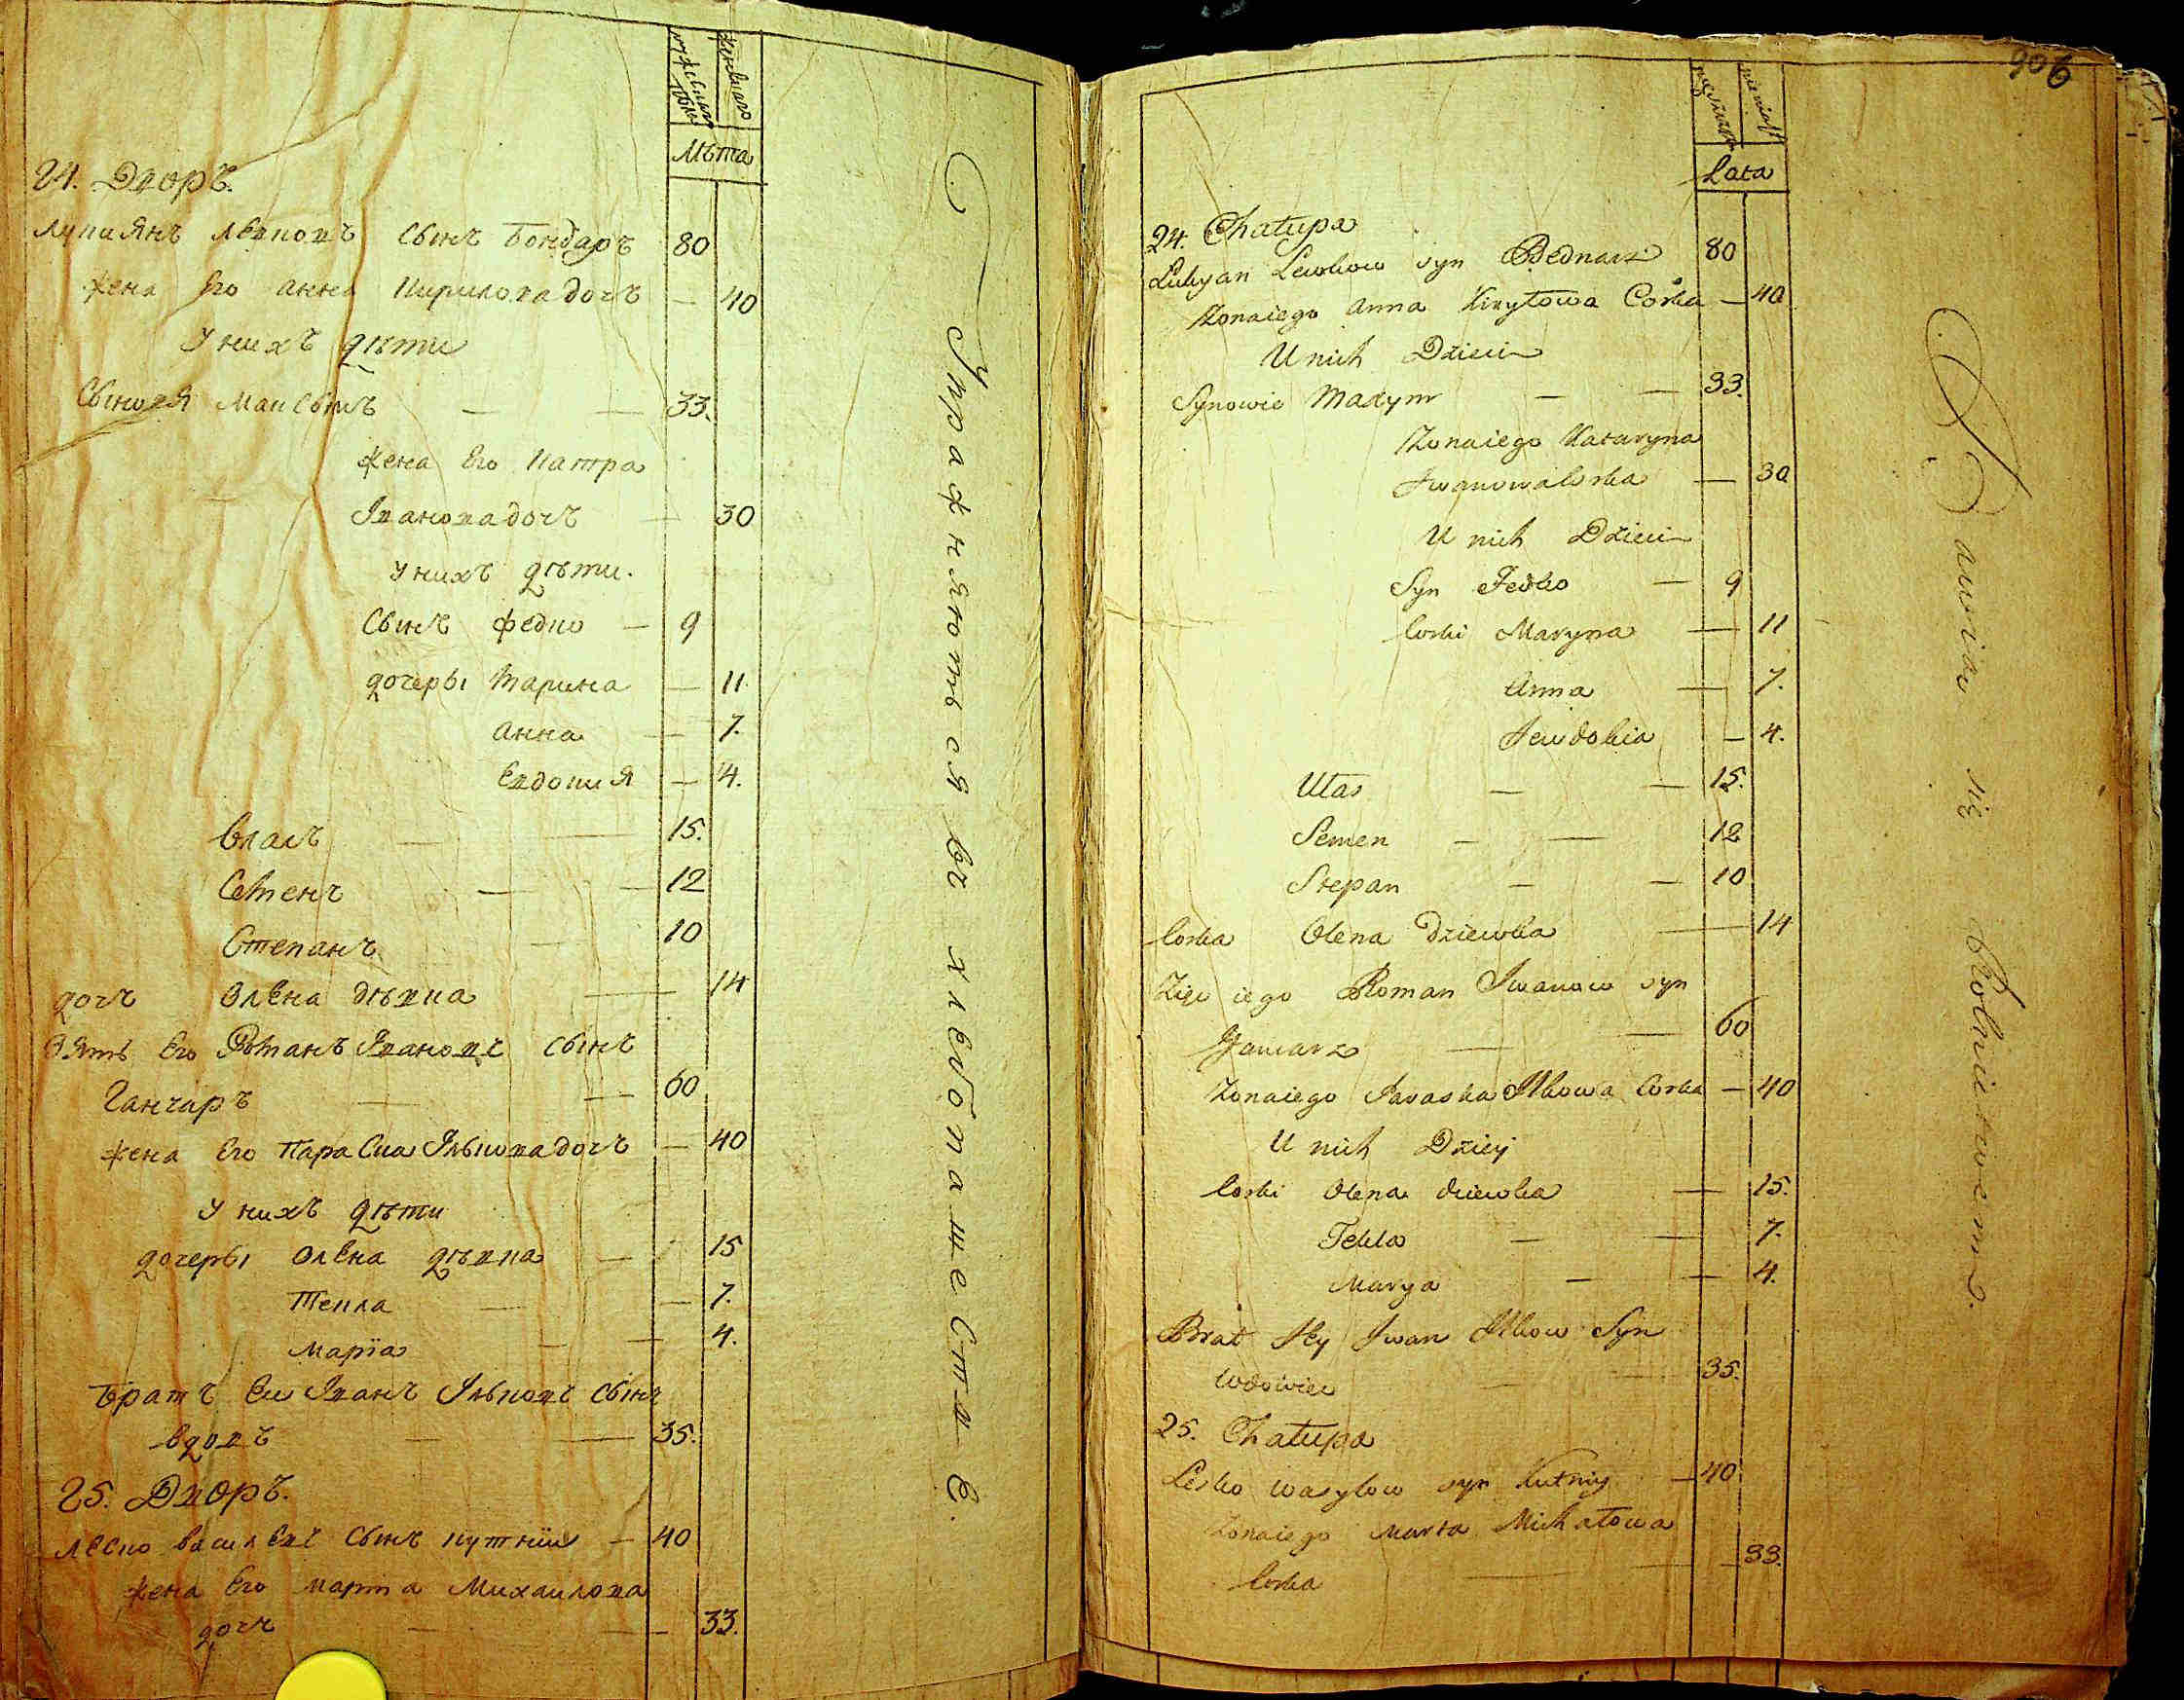 мужеска полу
женскаго
Лѣта
24. Дворъ.
Лукиянъ Левковъ Сынъ Бондаръ 80
жена Его Анна Кирилова дочъ — 40
У нихъ дѣти
Сыновя Максымъ — — 33.
жена Его Катра
Іванова дочъ — 30
У нихъ дѣти.
Сынъ Федко — 9
дочеры Марина — 11.
Анна — 7.
Евдокия — 4.
Власъ — — 15.
Семенъ — — 12
Степанъ — 10
дочъ Олена дѣвка — 14
Зять Его Романъ Івановъ Сынъ
Ганчаръ — — 60
жена Его Параска Ількова дочъ — 40
У нихъ дѣти
дочеры Олена дѣвка — 15
Текла — — 7.
Марїа — — 4.
Братъ Еи Іванъ Ільковъ Сынъ
вдовъ — — 35.
25. Дворъ.
Леско Василевъ Сынъ кутнїи — 40
жена Его Марта Михаилова
дочъ — — — 33.
Упражняются въ хлебопашестве.
906
Lata
24. Chałupa
Lukyan Lewkow syn Bednarz 80
Żonaiego Anna Kiryłowa Corka — 40
U nich Dzieci
Synowie Maxym — — 33.
Żonaiego Kataryna
Jwanowa Corka — 30
U nich Dzieci
Syn Fedko — 9
Corki Maryna — 11
Anna — 7.
Jewdokia — 4.
Ułas — — 15.
Semen — — 12
Stepan — — 10
Corka Olena Dziewka — 14
Zięc iego Roman Jwanow syn
Ganczarz — — 60
Żonaiego Paraska Jlkowa Corka — 40
U nich Dziecj
Corki Olena dziewka — 15.
Tekla — — 7.
Marya — — 4.
Brat Jey Jwan Jlkow Syn
Wdowiec — — 35.
25. Chałupa
Lesko Wasylow syn Kutniy — 40
Żonaiego Marta Michałowa
Corka — — 33.
Bawią się Rolnictwem.